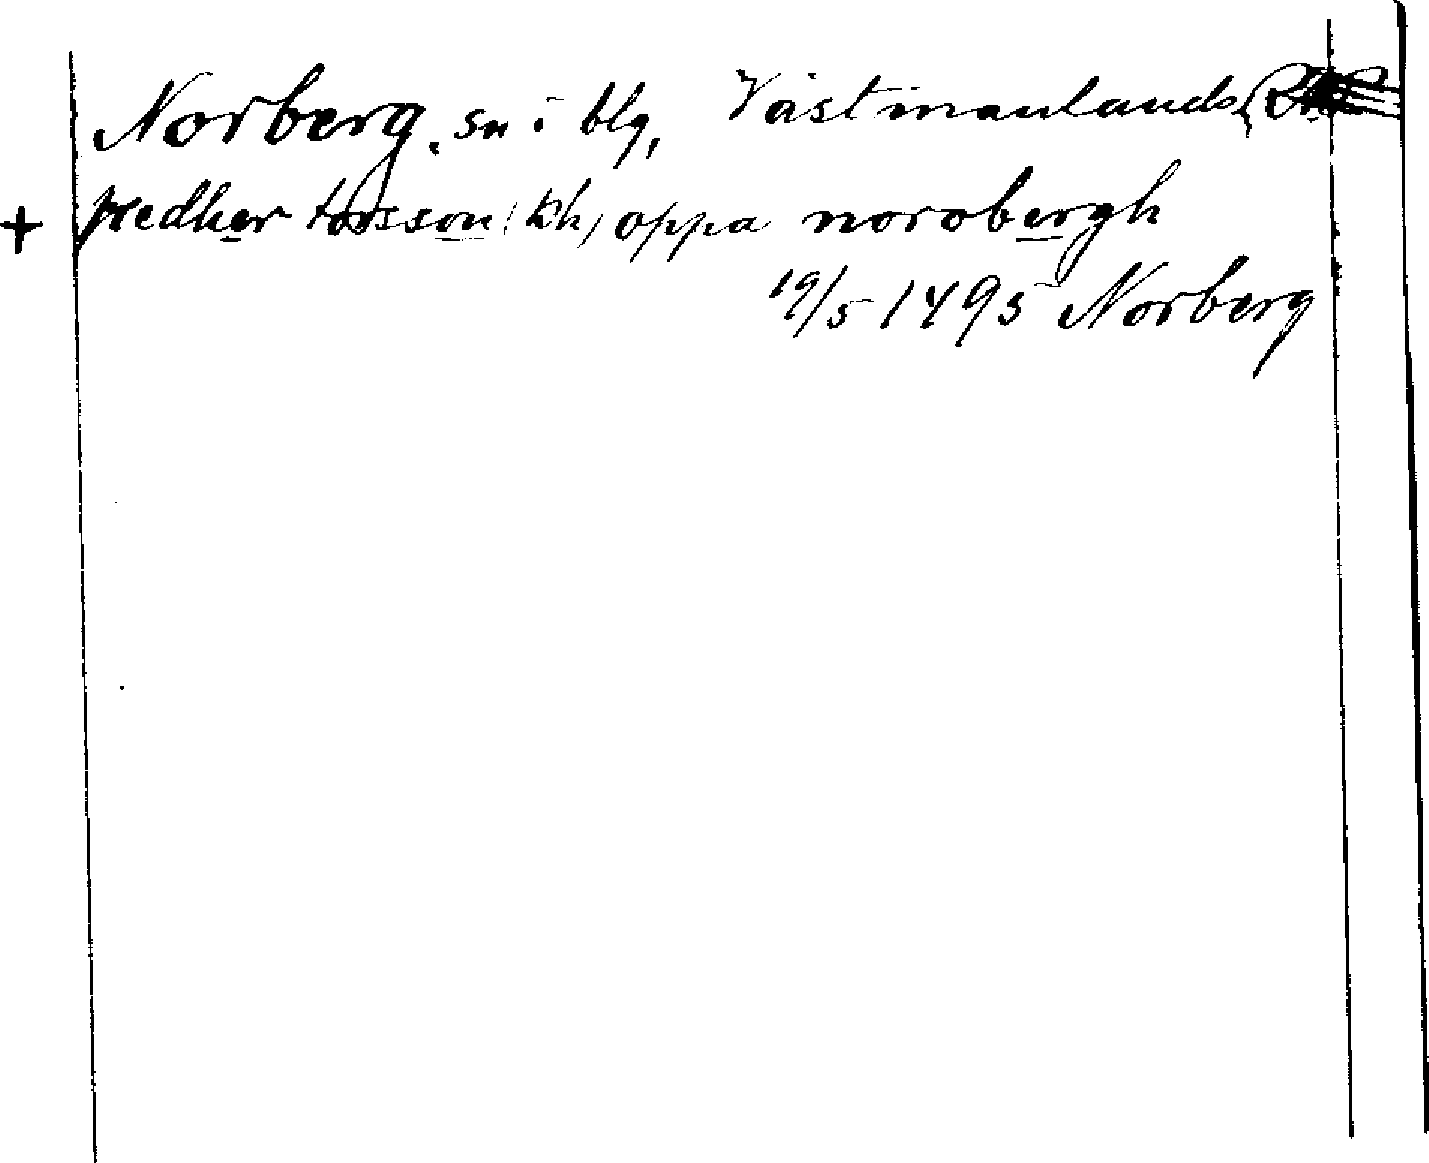 Norberg. sn i blg, Västmanlands
+ predher torsson (kh) oppa norobergh
19/5 1495 Norberg